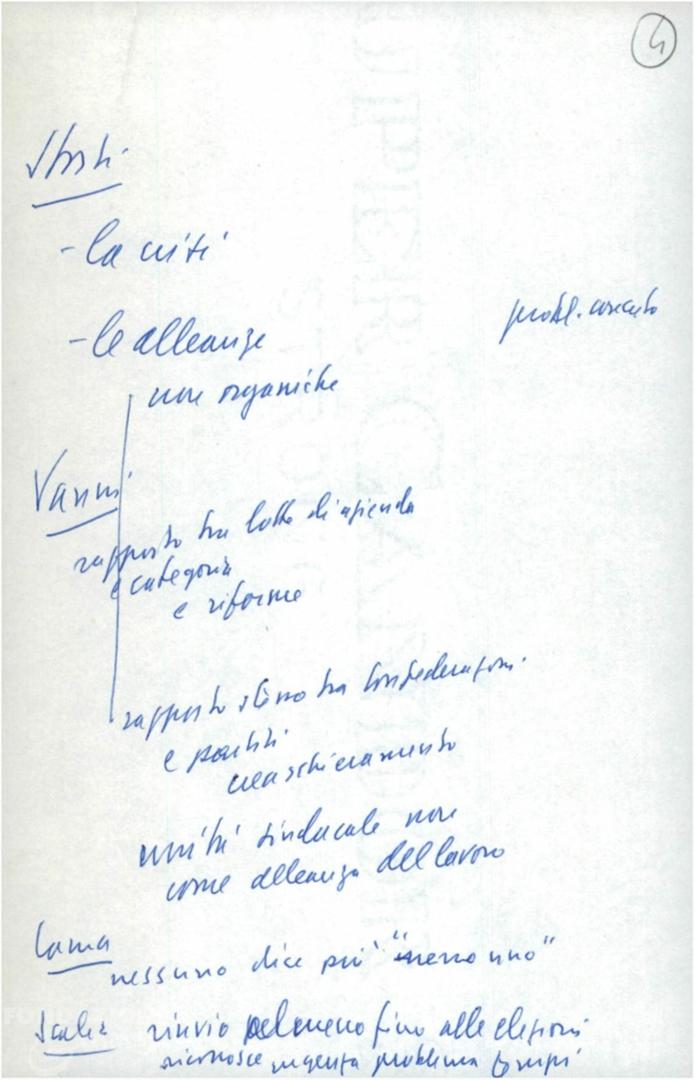 4
Storti
- la crisi
- le alleanze
non organiche
probl. concreto
Vanni
rapporto tra lotte di azienda
e categoria
e riforme
rapporto stesso tra Confederazioni
e partiti
crea schieramento
unità sindacale non
come alleanza del lavoro
Lama
nessuno dice più "meno uno"
Scalia rinvio almeno fino alle elezioni
riconosce urgenza problema tempi